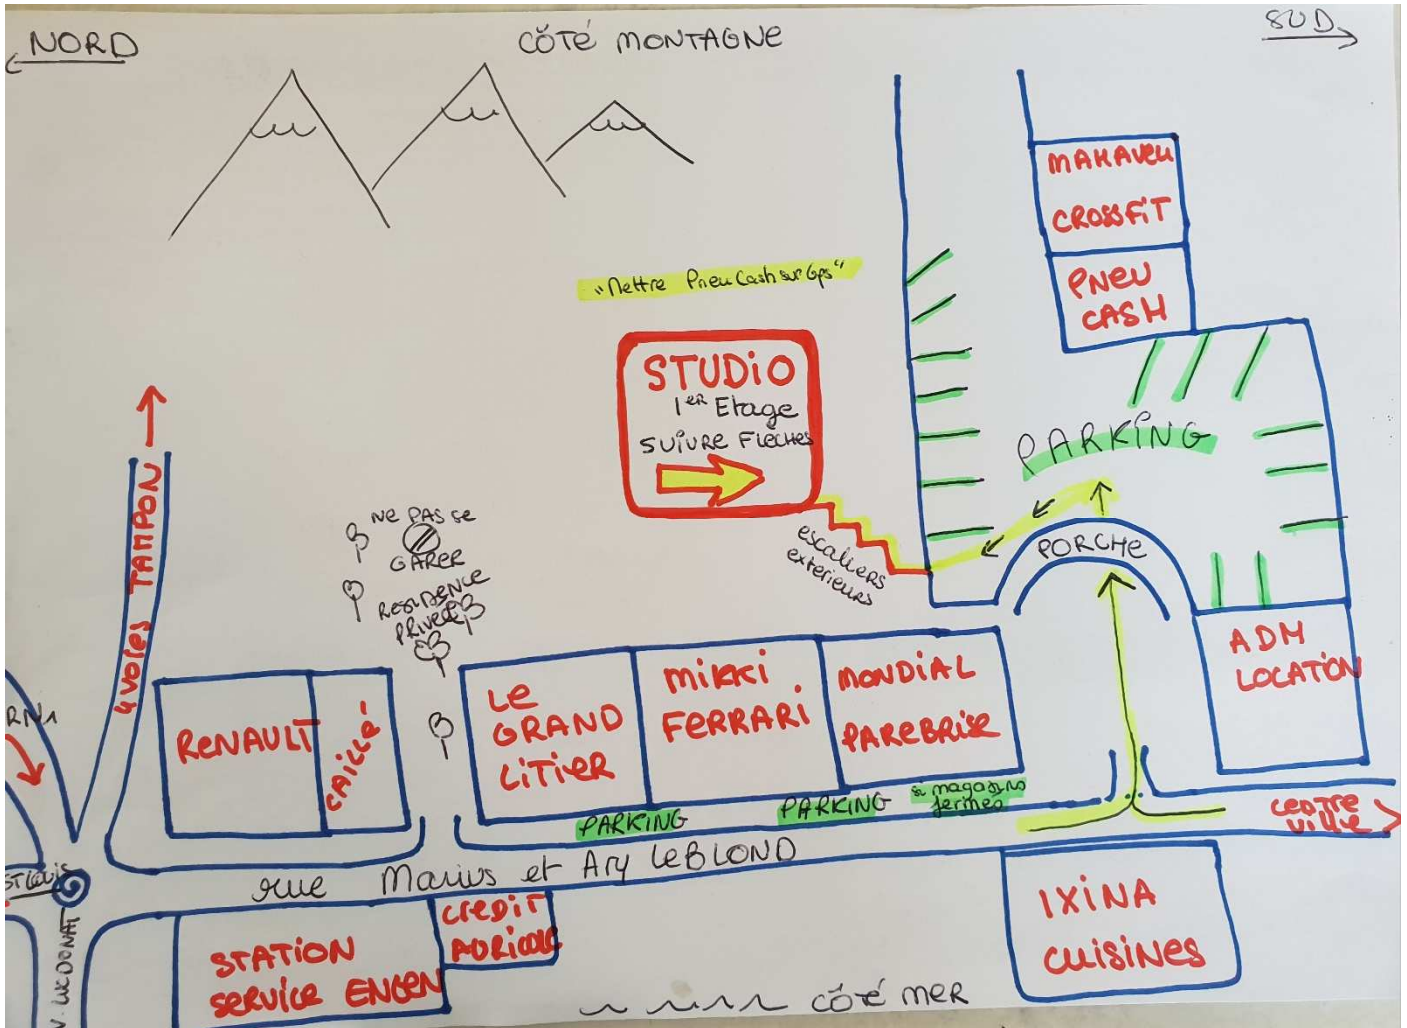 NORD
CÔTÉ MONTAGNE
SUD
MAHAVELI
CROSSFIT
PNEU
CASH
"Mettre Pneu Cash sur Gps"
STUDIO
1ER Etage
SUIVRE FLECHES
PARKING
PORCHE
escaliers
exterieurs
4 voies TAMPON
NE PAS SE
GARER
RESIDENCE
PRIVEE
RN1
RENAULT
CAILLE
LE
GRAND
LITIER
MIKKI
FERRARI
MONDIAL
PAREBRISE
ADM
LOCATION
PARKING
PARKING
si magasins
fermés
CENTRE
VILLE
rue Marius et Ary LEBLOND
ST LOUIS
LUC DONAT
STATION
SERVICE ENGEN
CREDIT
AGRICOLE
IXINA
CUISINES
CÔTÉ MER